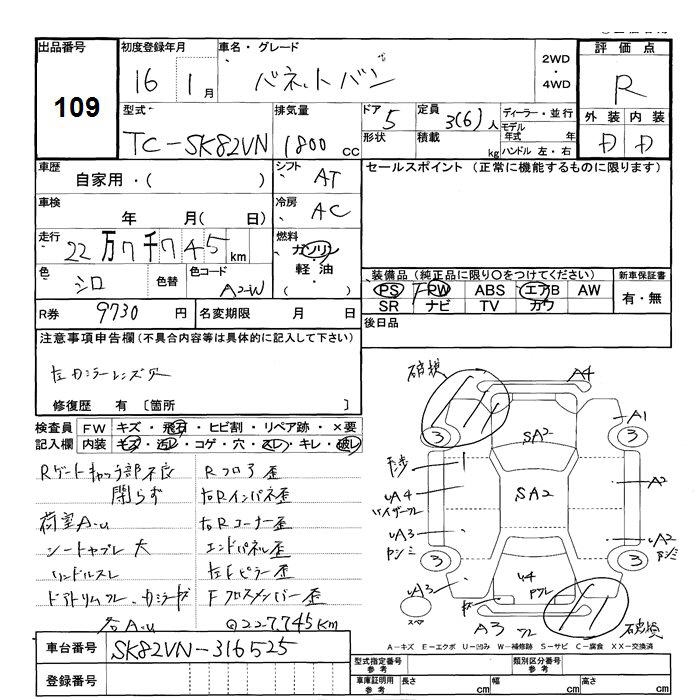 出品番号 初度登録年月 車名・グレード 2WD・4WD 評価点
109 16 1月 バネットバン R
型式 排気量 ドア 定員 ディーラー・並行 外装 内装
TC-SK82VN 1800cc 5 3(6)人 モデル年式 年 D D
形状 積載 kg ハンドル 左・右
車歴 シフト セールスポイント (正常に機能するものに限ります)
自家用・( ) AT
車検 冷房
年 月( 日) AC
走行 燃料
22万7千745km ガソリン
軽油
( )
色 色替 色コード 装備品(純正品に限り○をつけてください) 新車保証書
シロ A2-W PS PW ABS エアB AW 有・無
SR ナビ TV カワ
R券 9730円 名変期限 月 日 後日品
注意事項申告欄(不具合内容等は具体的に記入して下さい)
左カラーレンズ
修復歴 有 〔箇所
検査員記入欄 FW キズ・飛石・ヒビ割・リペア跡・×要
内装 キズ・汚レ・コゲ・穴・スレ・キレ・破レ
Rゲートキャッチ部不良 Rフロア歪
閉らず 右Rインパネ歪
荷室A・U 右Rコーナー歪
シートヤブレ大 エンドパネル歪
ハンドルスレ 左Fピラー歪
ドアトリムワレ Fクロスメンバー歪
右A・U 227,745km
破損 A4
3 3 A1
SA2
UA4 SA2 A2
UA3 UA2
3 3
UA3 U4
A3 破損
A-キズ E-エクボ U-凹み W-補修跡 S-サビ C-腐食 XX-交換済
車台番号 SK82VN-316525
登録番号
型式指定番号 参考 類別区分番号 参考
車庫証明用 参考 長さ cm 幅 cm 高さ cm